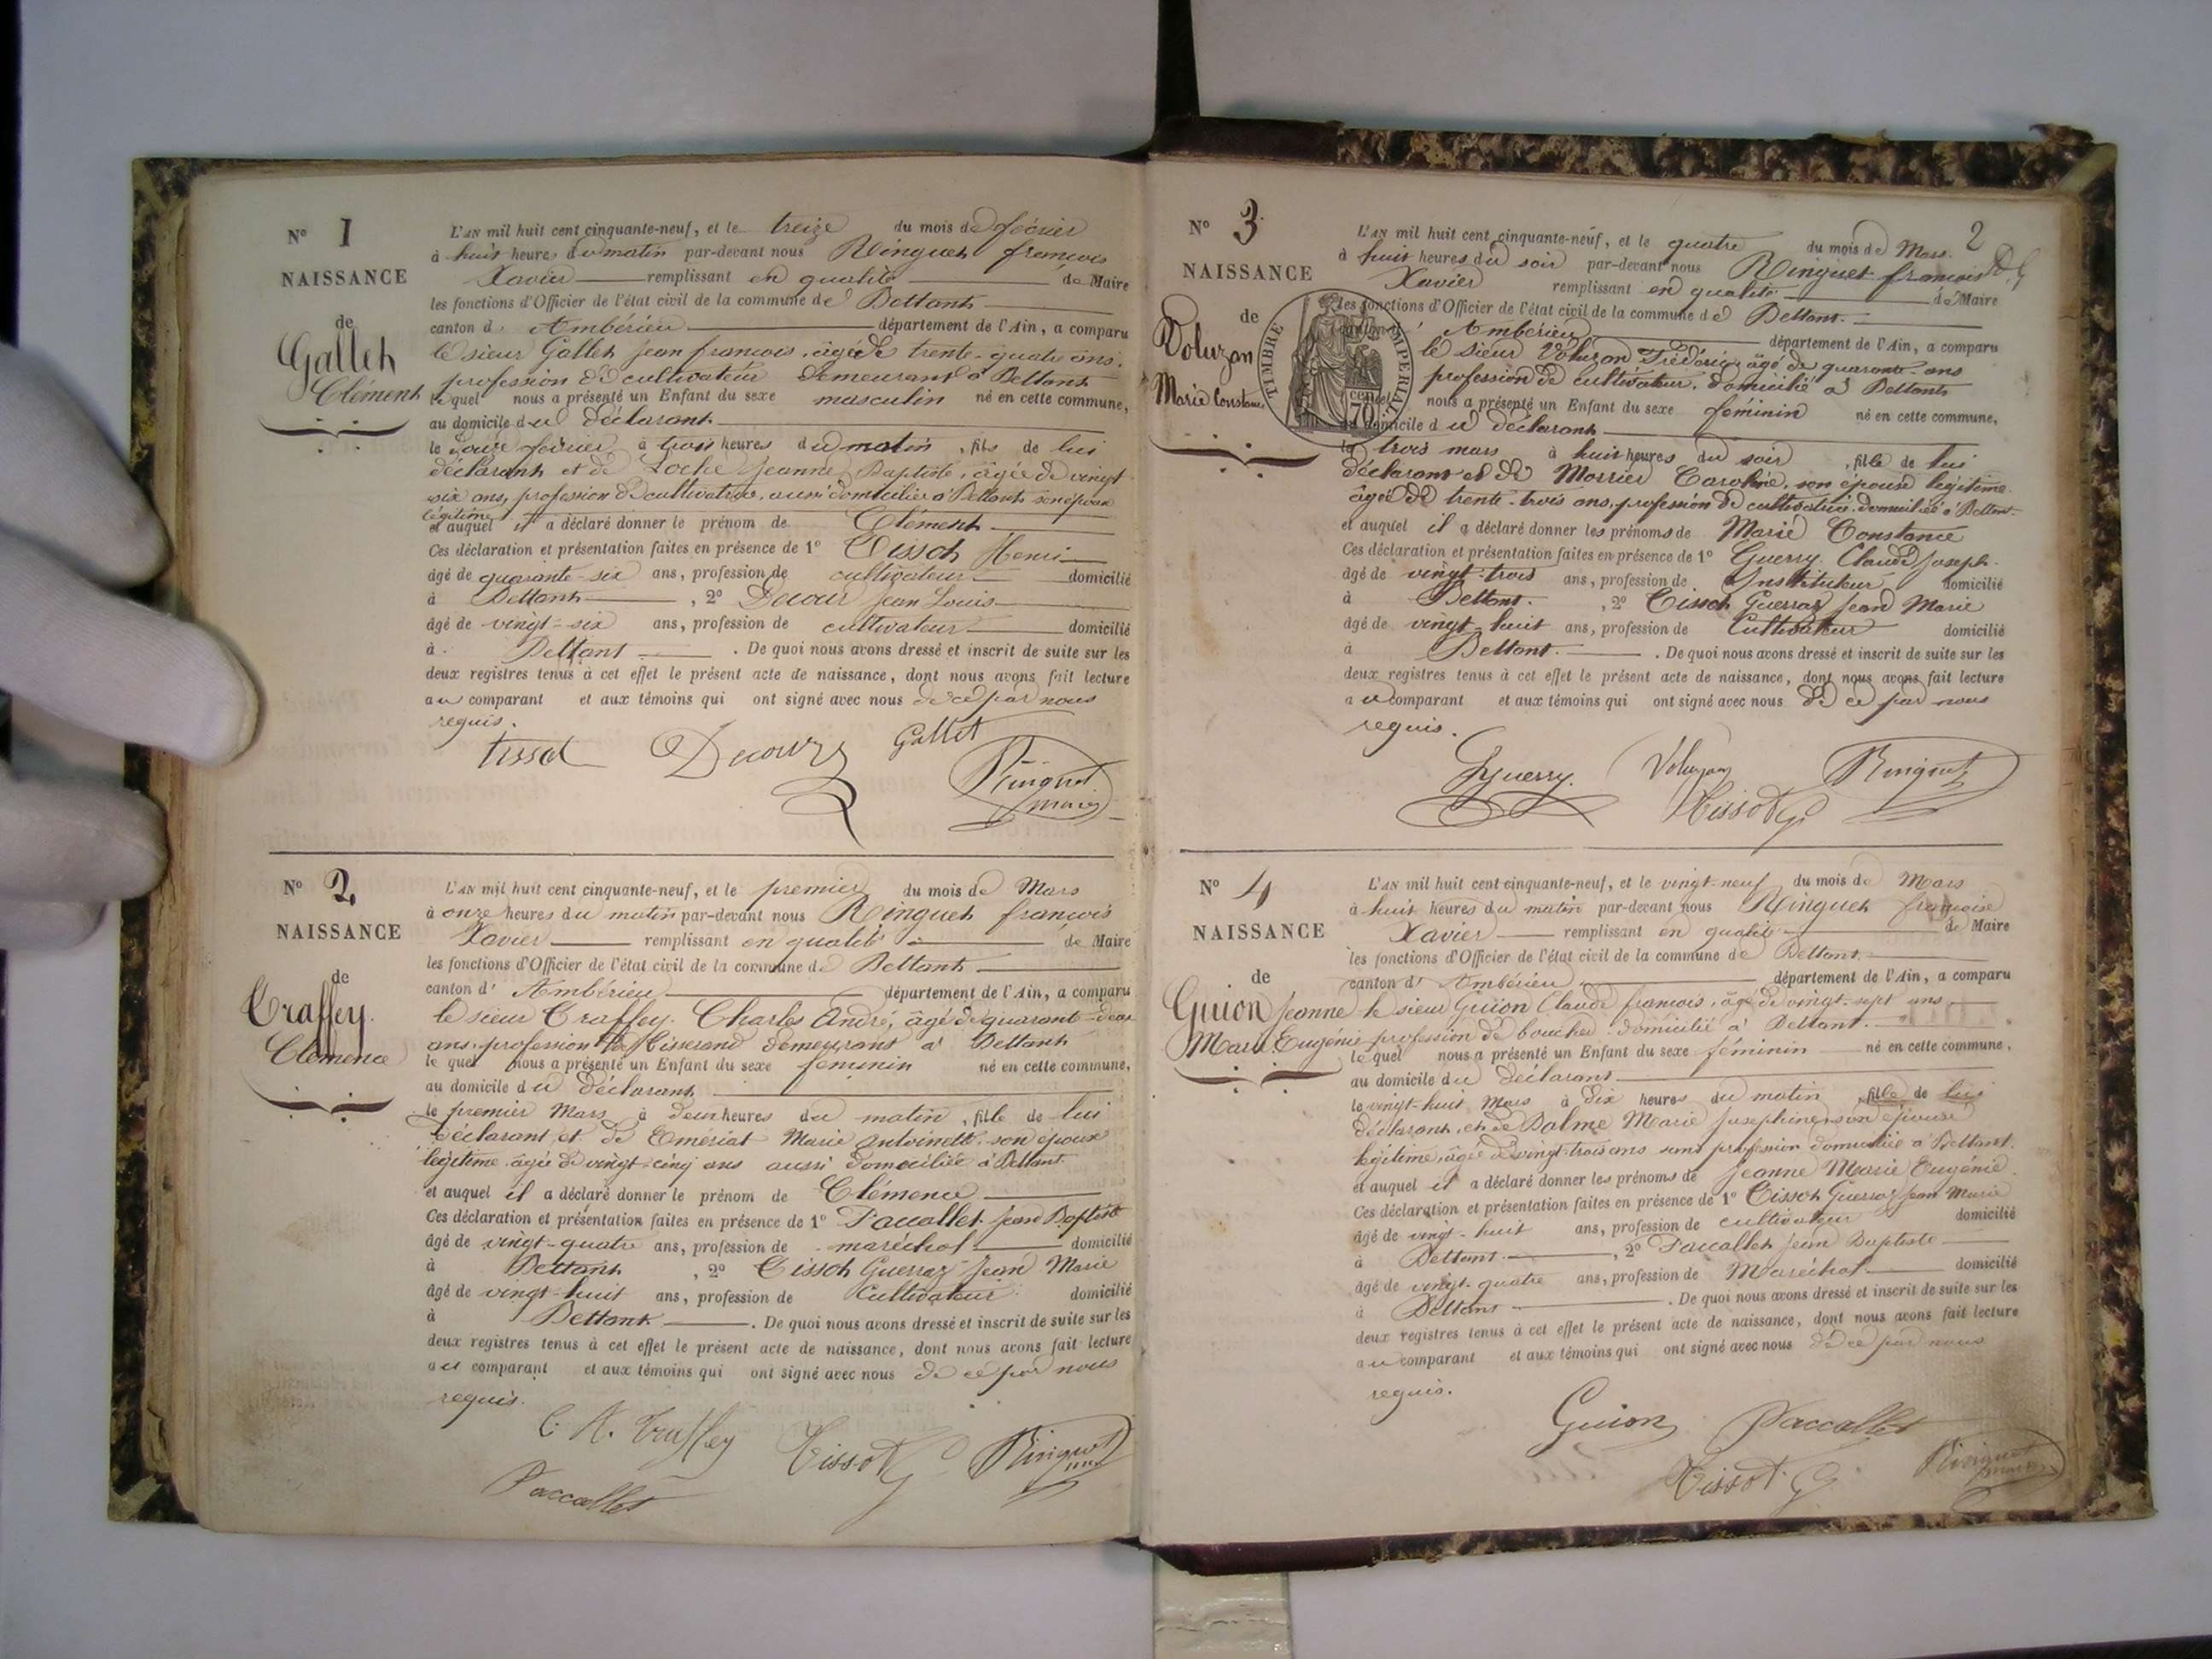 N° 1
NAISSANCE
de
Gallet
Clément
L'AN mil huit cent cinquante-neuf, et le treize du mois de février
à huit heures du matin par-devant nous Ringuet françois
Xavier remplissant en qualité de Maire
les fonctions d'Officier de l'état civil de la commune de Bettant
canton d' Ambérieu département de l'Ain, a comparu
le sieur Gallet Jean françois, âgé de trente-quatre ans,
profession de cultivateur demeurant à Bettant
lequel nous a présenté un Enfant du sexe masculin né en cette commune,
au domicile du déclarant
le douze février à trois heures du matin, fils de lui
déclarant et de Loche Jeanne Baptiste, âgée de vingt
six ans, profession de cultivatrice, aussi domiciliée à Bettant son épouse
légitime
et auquel il a déclaré donner le prénom de Clément
Ces déclaration et présentation faites en présence de 1° Tissot Henri
âgé de quarante-six ans, profession de cultivateur domicilié
à Bettant, 2° Decour Jean Louis
âgé de vingt-six ans, profession de cultivateur domicilié
à Bettant. De quoi nous avons dressé et inscrit de suite sur les
deux registres tenus à cet effet le présent acte de naissance, dont nous avons fait lecture
au comparant et aux témoins qui ont signé avec nous de ce par nous
requis.
tissot Decour Gallet
Ringuet
maire
N° 2
NAISSANCE
de
Traffey
Clémence
L'AN mil huit cent cinquante-neuf, et le premier du mois de Mars
à onze heures du matin par-devant nous Ringuet françois
Xavier remplissant en qualité de Maire
les fonctions d'Officier de l'état civil de la commune de Bettant
canton d' Ambérieu département de l'Ain, a comparu
le sieur Traffey Charles André, âgé de quarante-deux
ans, profession de Tisserand demeurant à Bettant
le quel nous a présenté un Enfant du sexe féminin né en cette commune,
au domicile du déclarant
le premier Mars à deux heures du matin, fille de lui
déclarant, et de Emériat Marie Antoinette, son épouse
légitime âgée de vingt-cinq ans aussi domiciliée à Bettant
et auquel il a déclaré donner le prénom de Clémence
Ces déclaration et présentation faites en présence de 1° Paccallet Jean Baptiste
âgé de vingt-quatre ans, profession de maréchal domicilié
à Bettant, 2° Tissot Guerraz Jean Marie
âgé de vingt-huit ans, profession de Cultivateur domicilié
à Bettant. De quoi nous avons dressé et inscrit de suite sur les
deux registres tenus à cet effet le présent acte de naissance, dont nous avons fait lecture
au comparant et aux témoins qui ont signé avec nous de ce par nous
requis.
C. A. Traffey Tissot G Ringuet
Paccallet
2
N° 3
NAISSANCE
de
Voluzan
Marie Constance
TIMBRE IMPERIAL
70 cent
L'AN mil huit cent cinquante-neuf, et le quatre du mois de Mars
à huit heures du soir par-devant nous Ringuet françois
Xavier remplissant en qualité de Maire
les fonctions d'Officier de l'état civil de la commune de Bettant
canton d' Ambérieu département de l'Ain, a comparu
le sieur Voluzan Frédéric, âgé de quarante ans
profession de cultivateur, domicilié à Bettant
lequel nous a présenté un Enfant du sexe féminin né en cette commune,
au domicile du déclarant
le trois mars à huit heures du soir, fille de lui
déclarant et de Morrier Caroline, son épouse légitime
âgée de trente-trois ans, profession de cultivatrice, domiciliée à Bettant
et auquel il a déclaré donner les prénoms de Marie Constance
Ces déclaration et présentation faites en présence de 1° Guerry Claude Joseph
âgé de vingt-trois ans, profession de Instituteur domicilié
à Bettant, 2° Tissot Guerraz Jean Marie
âgé de vingt-huit ans, profession de Cultivateur domicilié
à Bettant. De quoi nous avons dressé et inscrit de suite sur les
deux registres tenus à cet effet le présent acte de naissance, dont nous avons fait lecture
au comparant et aux témoins qui ont signé avec nous de ce par nous
requis.
Guerry Voluzan Ringuet
Tissot G
N° 4
NAISSANCE
de
Guion Jeanne
Marie Eugénie
L'AN mil huit cent cinquante-neuf, et le vingt-neuf du mois de Mars
à huit heures du matin par-devant nous Ringuet françois
Xavier remplissant en qualité de Maire
les fonctions d'Officier de l'état civil de la commune de Bettant
canton d' Ambérieu département de l'Ain, a comparu
le sieur Guion Claude françois, âgé de vingt-sept ans
profession de boucher domicilié à Bettant
lequel nous a présenté un Enfant du sexe féminin né en cette commune,
au domicile du déclarant
le vingt-huit Mars à dix heures du matin, fille de lui
déclarant, et de Balme Marie Josephine, son épouse
légitime, âgée de vingt-trois ans sans profession domiciliée à Bettant
et auquel il a déclaré donner les prénoms de Jeanne Marie Eugénie
Ces déclaration et présentation faites en présence de 1° Tissot Guerraz Jean Marie
âgé de vingt-huit ans, profession de cultivateur domicilié
à Bettant, 2° Paccallet Jean Baptiste
âgé de vingt-quatre ans, profession de Maréchal domicilié
à Bettant. De quoi nous avons dressé et inscrit de suite sur les
deux registres tenus à cet effet le présent acte de naissance, dont nous avons fait lecture
au comparant et aux témoins qui ont signé avec nous de ce par nous
requis.
Guion Paccallet
Tissot G Ringuet
maire